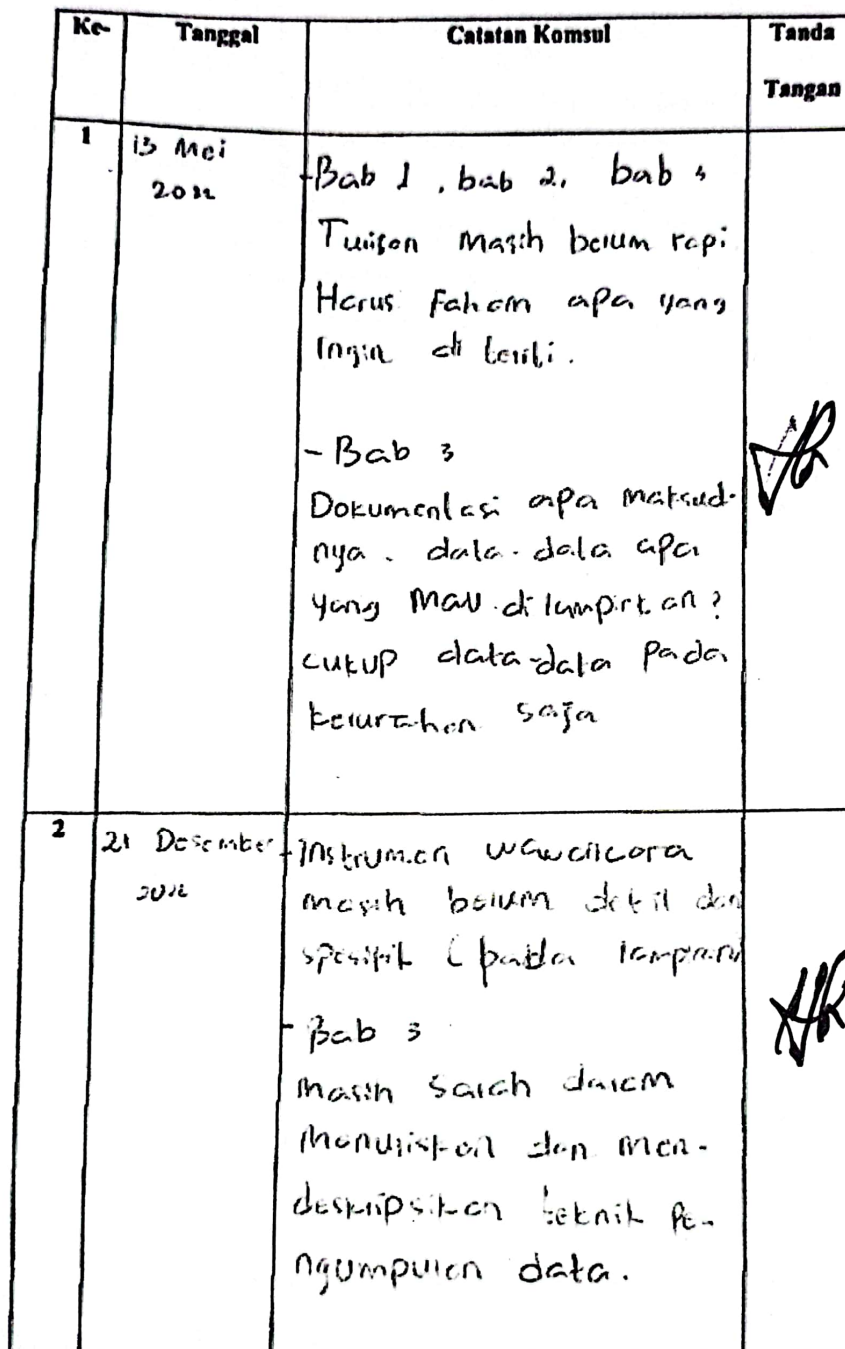 Ke- Tanggal Catatan Komsul Tanda
Tangan
1 13 Mei
2022
- Bab 1, bab 2, bab 3
Tulisan masih belum rapi
Harus faham apa yang
ingin di teliti.
- Bab 3
Dokumentasi apa maksud-
nya. data-data apa
yang mau dilampirkan?
cukup data-data pada
kelurahan saja
2 21 Desember
2022
- Instrumen wawancara
masih belum detil dan
spesifik (pada
- Bab 3
masih salah dalam
menuliskan dan men-
deskripsikan teknik pe-
ngumpulan data.